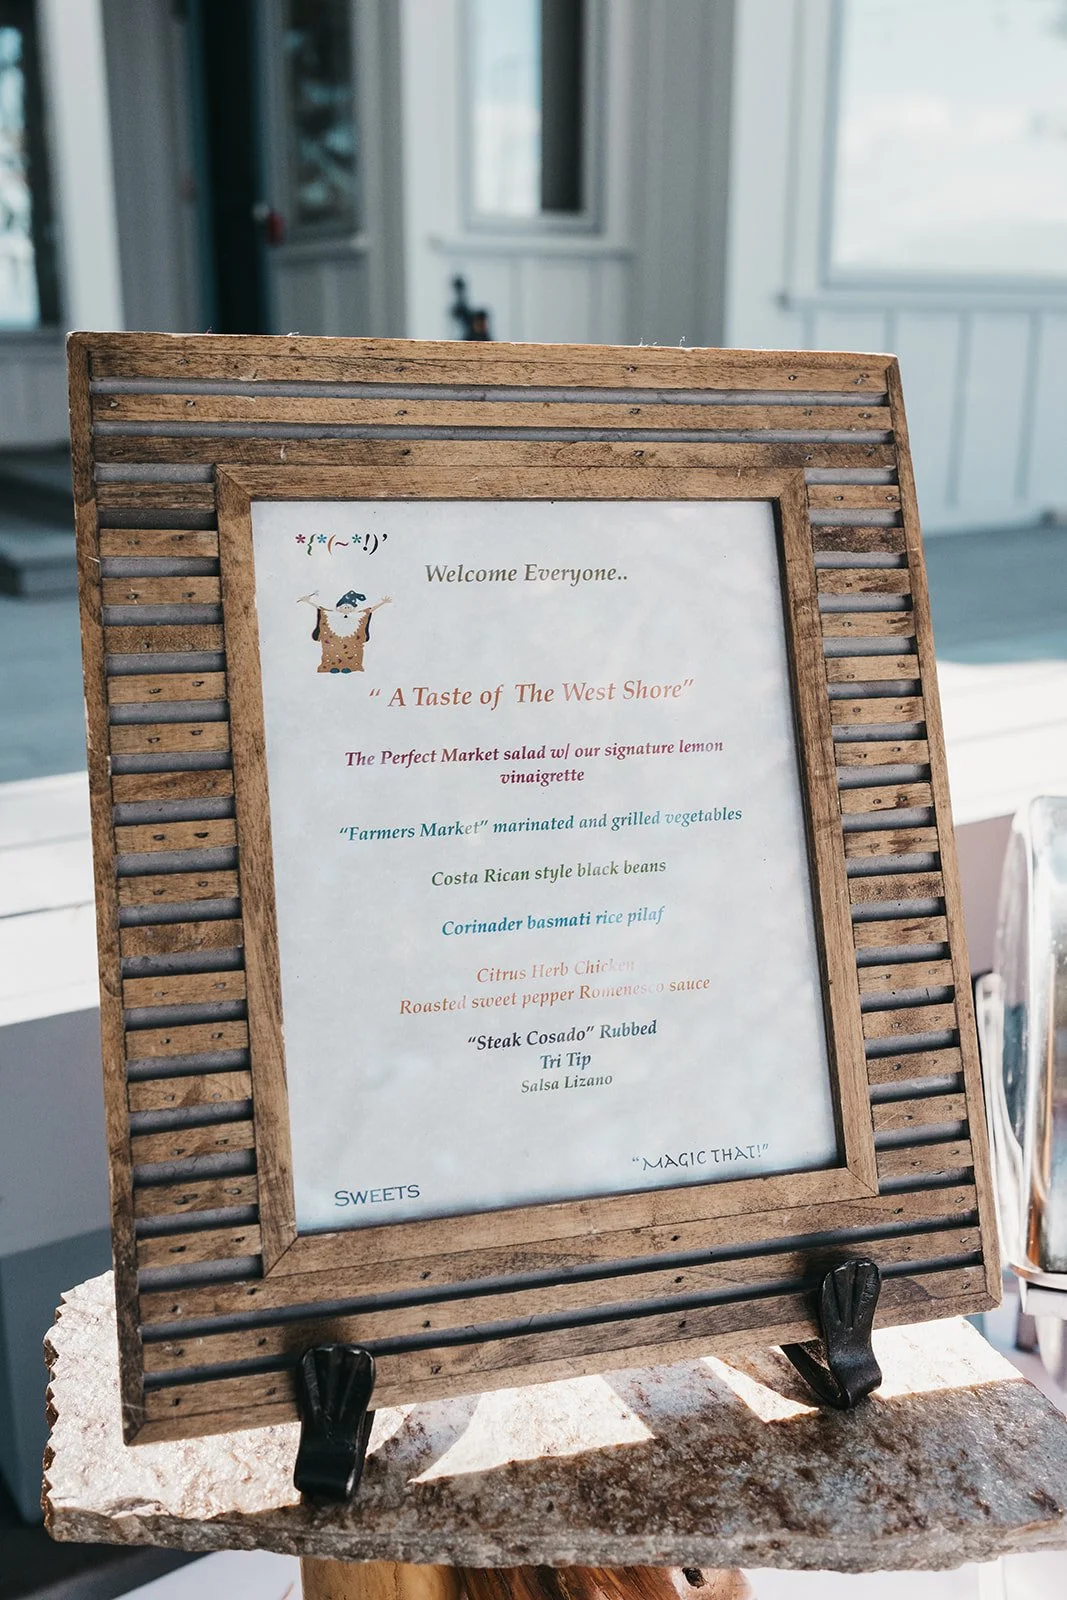 *{*(~*!)’
Welcome Everyone..
“ A Taste of The West Shore”
The Perfect Market salad w/ our signature lemon
vinaigrette
“Farmers Market” marinated and grilled vegetables
Costa Rican style black beans
Corinader basmati rice pilaf
Citrus Herb Chicken
Roasted sweet pepper Romenesco sauce
“Steak Cosado” Rubbed
Tri Tip
Salsa Lizano
“MAGIC THAT!”
SWEETS